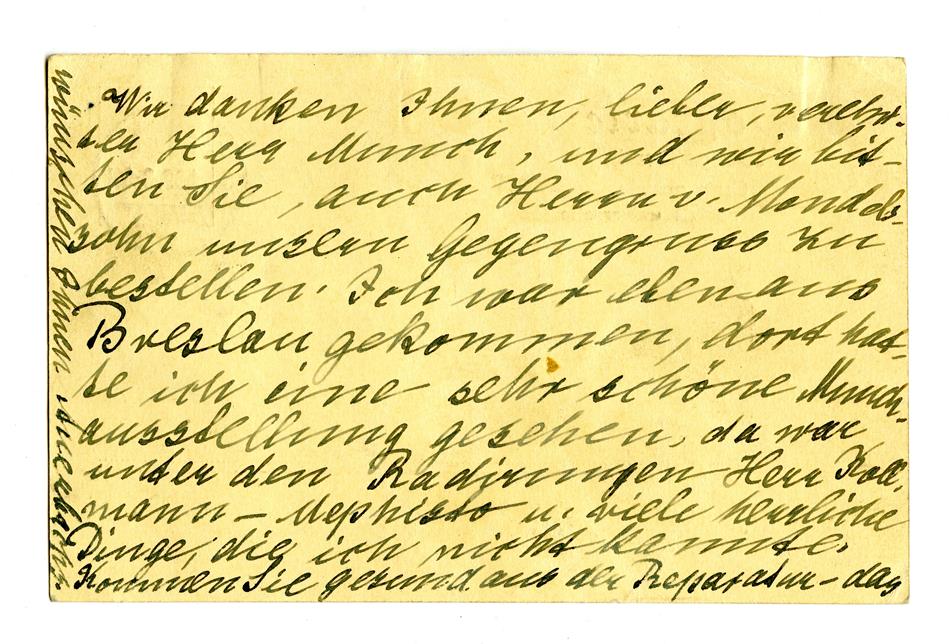 Wir danken Ihnen, lieber, verehr-
ter Herr Munch, und wir bit-
ten Sie, auch Herrn v. Mendels-
sohn unseren Gegengruss zu
bestellen. Ich war eben aus
Breslau gekommen, dort hat-
te ich eine sehr schöne Munch-
ausstellung gesehen, da war
unter den Radirungen Herr Koll-
mann – Mephisto u. viele herrliche
Dinge, die ich nicht kannte.
Kommen Sie gesund aus der Reparatur – das
wünschen Ihnen